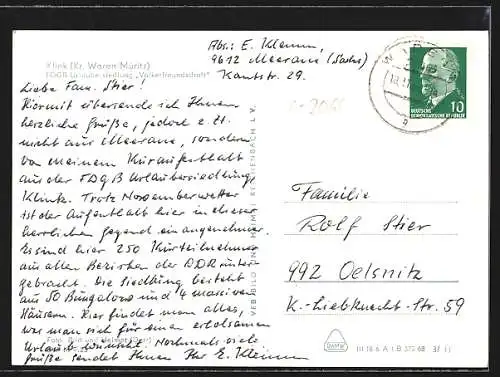 Klink (Kr. Waren Müritz)
FDGB Urlaubersiedlung „Völkerfreundschaft"
Abs.: E. Klemm,
9612 Meerane (Sachs)
Kantstr. 29.
Liebe Fam. Stier!
Hiermit übersende ich Ihnen
herzliche Grüße, jedoch z. Zt.
nicht aus Meerane, sondern
von meinem Kuraufenthalt
aus der FDGB Urlaubersiedlung,
Klink. Trotz Novemberwetter
ist der Aufenthalt hier in dieser
herrlichen Gegend ein angenehmer.
Es sind hier 250 Kurteilnehmer
aus allen Bezirken der DDR unter-
gebracht. Die Siedlung besteht
aus 50 Bungalows und 4 massiven
Häusern. Hier findet man alles,
was man sich für einen erholsamen
Urlaub wünscht. Nochmals viele
Grüße sendet Ihnen Ihr E. Klemm
Foto: Bild und Heimat
VEB BILD UND HEIMAT REICHENBACH I. V.
10
DEUTSCHE
DEMOKRATISCHE REPUBLIK
Familie
Rolf Stier
992 Oelsnitz
K.-Liebknecht-Str. 59
III 18 6 A 1 B 372 68